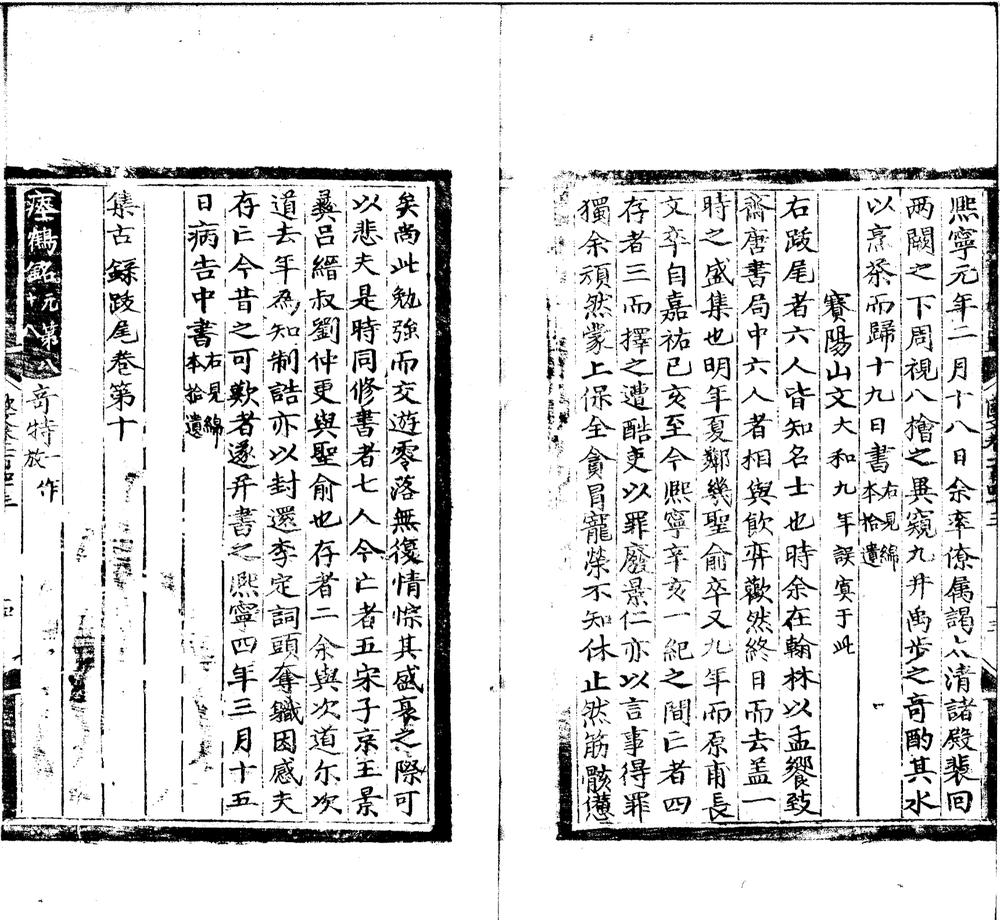 熙寧元年二月十八日余率僚属謁太清諸殿裴回
两闕之下周視八檜之異窺九井禹步之奇酌其水
以烹茶而歸十九日書右見綿本拾遺
賽陽山文大和九年誤寘于此
右跋尾者六人皆知名士也時余在翰林以孟饗致
齋唐書局中六人者相與飲弈歡然終日而去盖一
時之盛集也明年夏鄰幾聖俞卒又九年而原甫長
文卒自嘉祐己亥至今熙寧辛亥一紀之間亡者四
存者三而擇之遭酷吏以罪廢景仁亦以言事得罪
獨余頑然蒙上保全貪冒寵榮不知休止然筋骸憊
矣尚此勉強而交遊零落無復情悰其盛衰之際可
以悲夫是時同修書者七人今亡者五宋子京王景
彝吕縉叔劉仲更與聖俞也存者二余與次道尔次
道去年為知制誥亦以封還李定詞頭奪軄因感夫
存亡今昔之可歎者遂并書之熙寧四年三月十五
日病告中書右見綿本拾遺
集古錄跋尾卷第十
瘞鶴銘元第八十八
奇特一作放